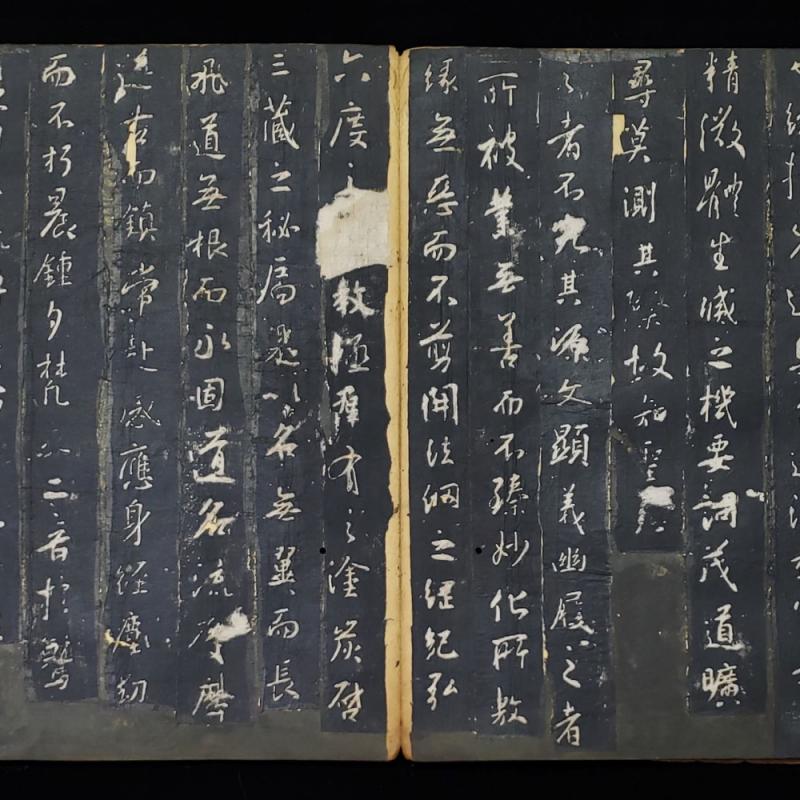 精微體生滅之機要詞茂道曠
尋莫測其際故知聖
之者不究其源文顯義幽履之者
所被業無善而不臻妙化所敷
緣無惡而不剪開法網之綱紀弘
六度之教拯群有之塗炭啓
三藏之秘扃是以名無翼而長
飛道無根而永固道名流慶歷
遂古而鎮常赴感應身經塵劫
而不朽晨鍾夕梵交二音於鷲